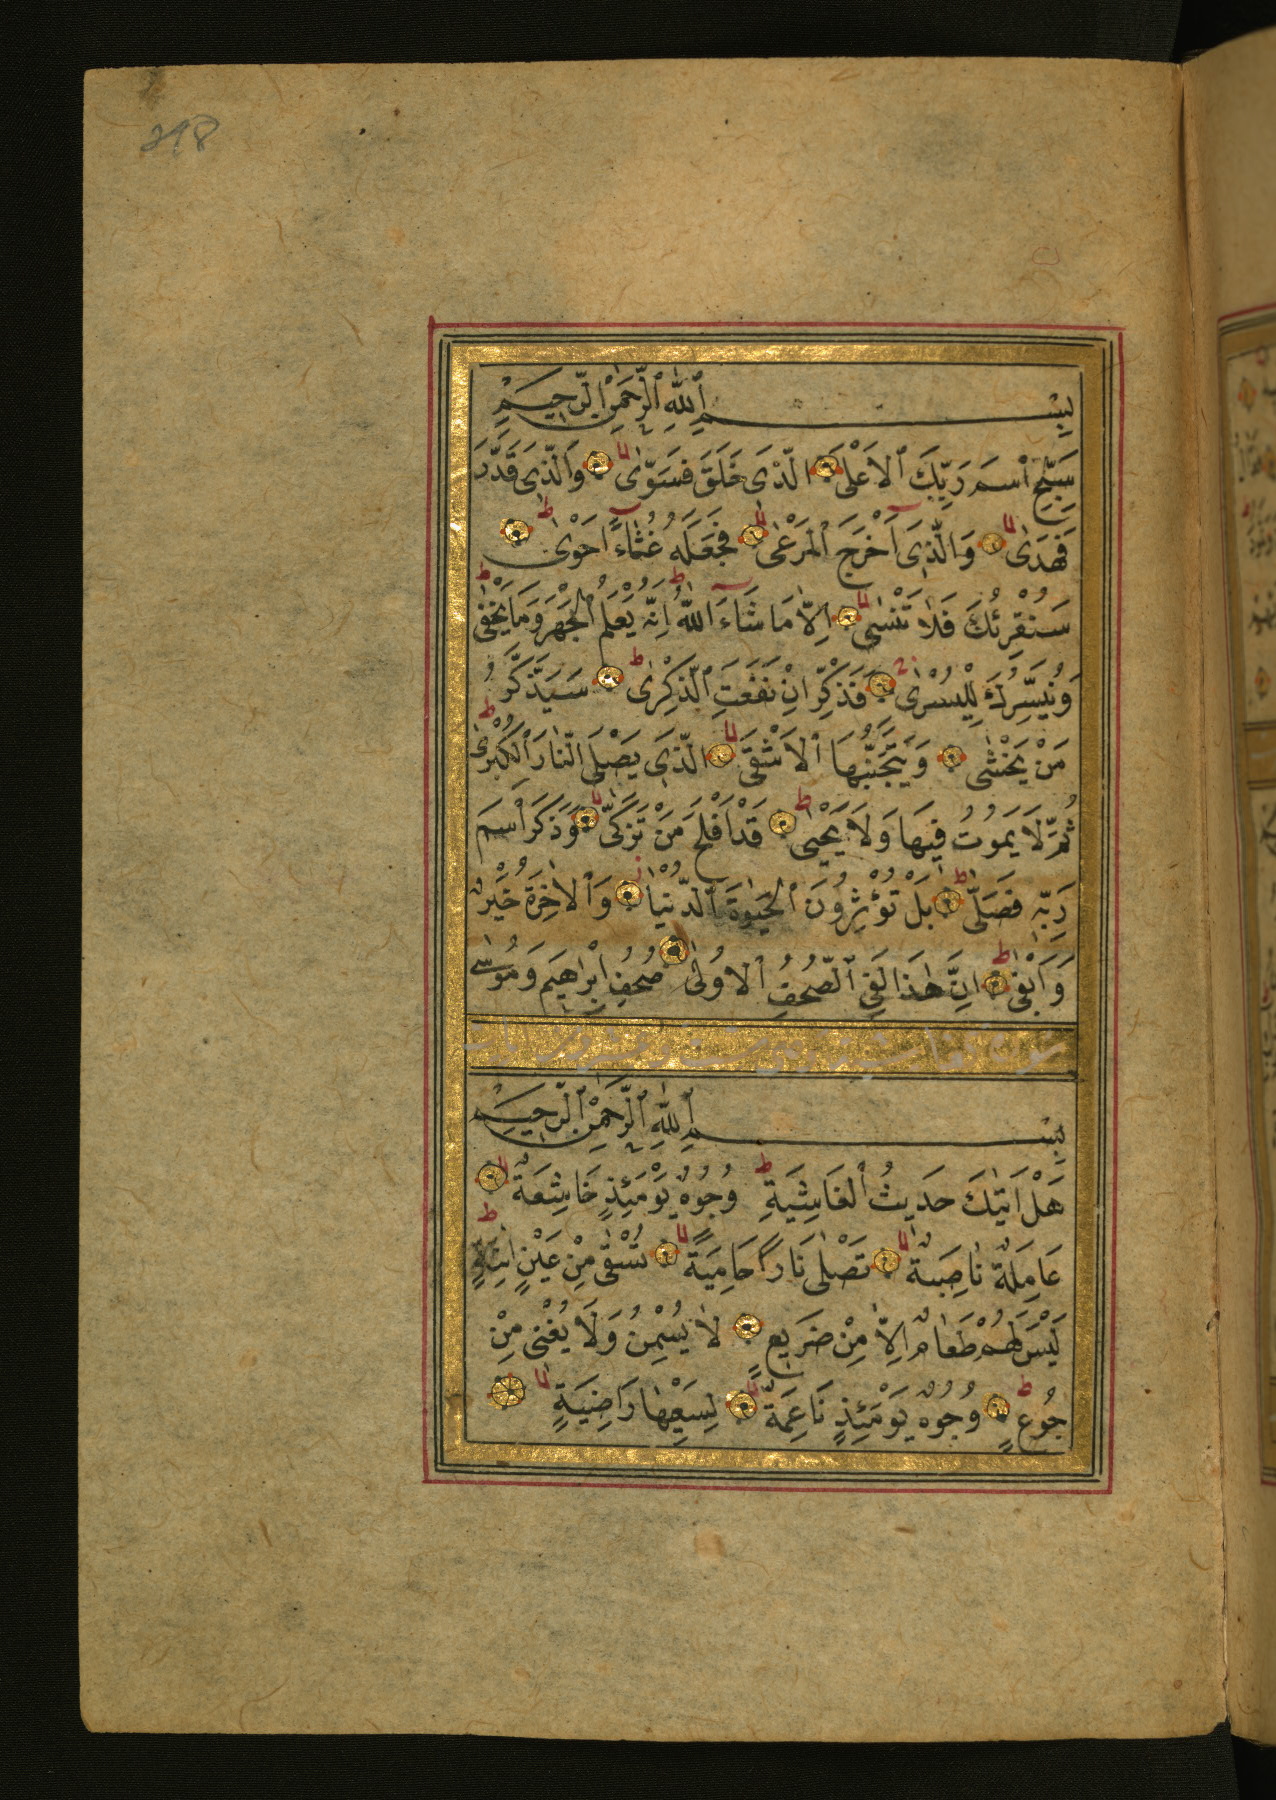 218
بِسْمِ ٱللّٰهِ ٱلرَّحْمٰنِ ٱلرَّحِيمِ
سَبِّحِ ٱسْمَ رَبِّكَ ٱلْاَعْلَىۙ الَّذ۪ى خَلَقَ فَسَوّٰىۙ وَالَّذ۪ى قَدَّرَ
فَهَدٰىۙ وَالَّذ۪ىٓ اَخْرَجَ ٱلْمَرْعٰىۙ فَجَعَلَهُ غُثَٓاءً اَحْوٰىۜ
سَنُقْرِئُكَ فَلَا تَنْسٰىۙ اِلَّا مَا شَٓاءَ اللّٰهُ اِنَّهُ يَعْلَمُ ٱلْجَهْرَ وَمَا يَخْفٰى
وَنُيَسِّرُكَ لِلْيُسْرٰى فَذَكِّرْ اِنْ نَفَعَتِ ٱلذِّكْرٰى سَيَذَّكَّرُ
مَنْ يَخْشٰى وَيَتَجَنَّبُهَا ٱلْاَشْقَى الَّذ۪ى يَصْلَى النَّارَ ٱلْكُبْرٰى
ثُمَّ لَا يَمُوتُ فِيهَا وَلَا يَحْيٰى قَدْ اَفْلَحَ مَنْ تَزَكّٰى وَذَكَرَ ٱسْمَ
رَبِّهِ فَصَلّٰى بَلْ تُؤْثِرُونَ ٱلْحَيٰوةَ ٱلدُّنْيَا وَٱلْاٰخِرَةُ خَيْرٌ
وَاَبْقٰى اِنَّ هٰذَا لَفِى ٱلصُّحُفِ ٱلْاُولٰى صُحُفِ اِبْرٰهِيمَ وَمُوسٰى
بِسْمِ ٱللّٰهِ ٱلرَّحْمٰنِ ٱلرَّحِيمِ
هَلْ اَتٰيكَ حَدِيثُ ٱلْغَاشِيَةِ وُجُوهٌ يَوْمَئِذٍ خَاشِعَةٌ
عَامِلَةٌ نَاصِبَةٌ تَصْلٰى نَارًا حَامِيَةً تُسْقٰى مِنْ عَيْنٍ اٰنِيَةٍ
لَيْسَ لَهُمْ طَعَامٌ اِلَّا مِنْ ضَرِيعٍ لَا يُسْمِنُ وَلَا يُغْنِى مِنْ
جُوعٍ وُجُوهٌ يَوْمَئِذٍ نَاعِمَةٌ لِسَعْيِهَا رَاضِيَةٍ